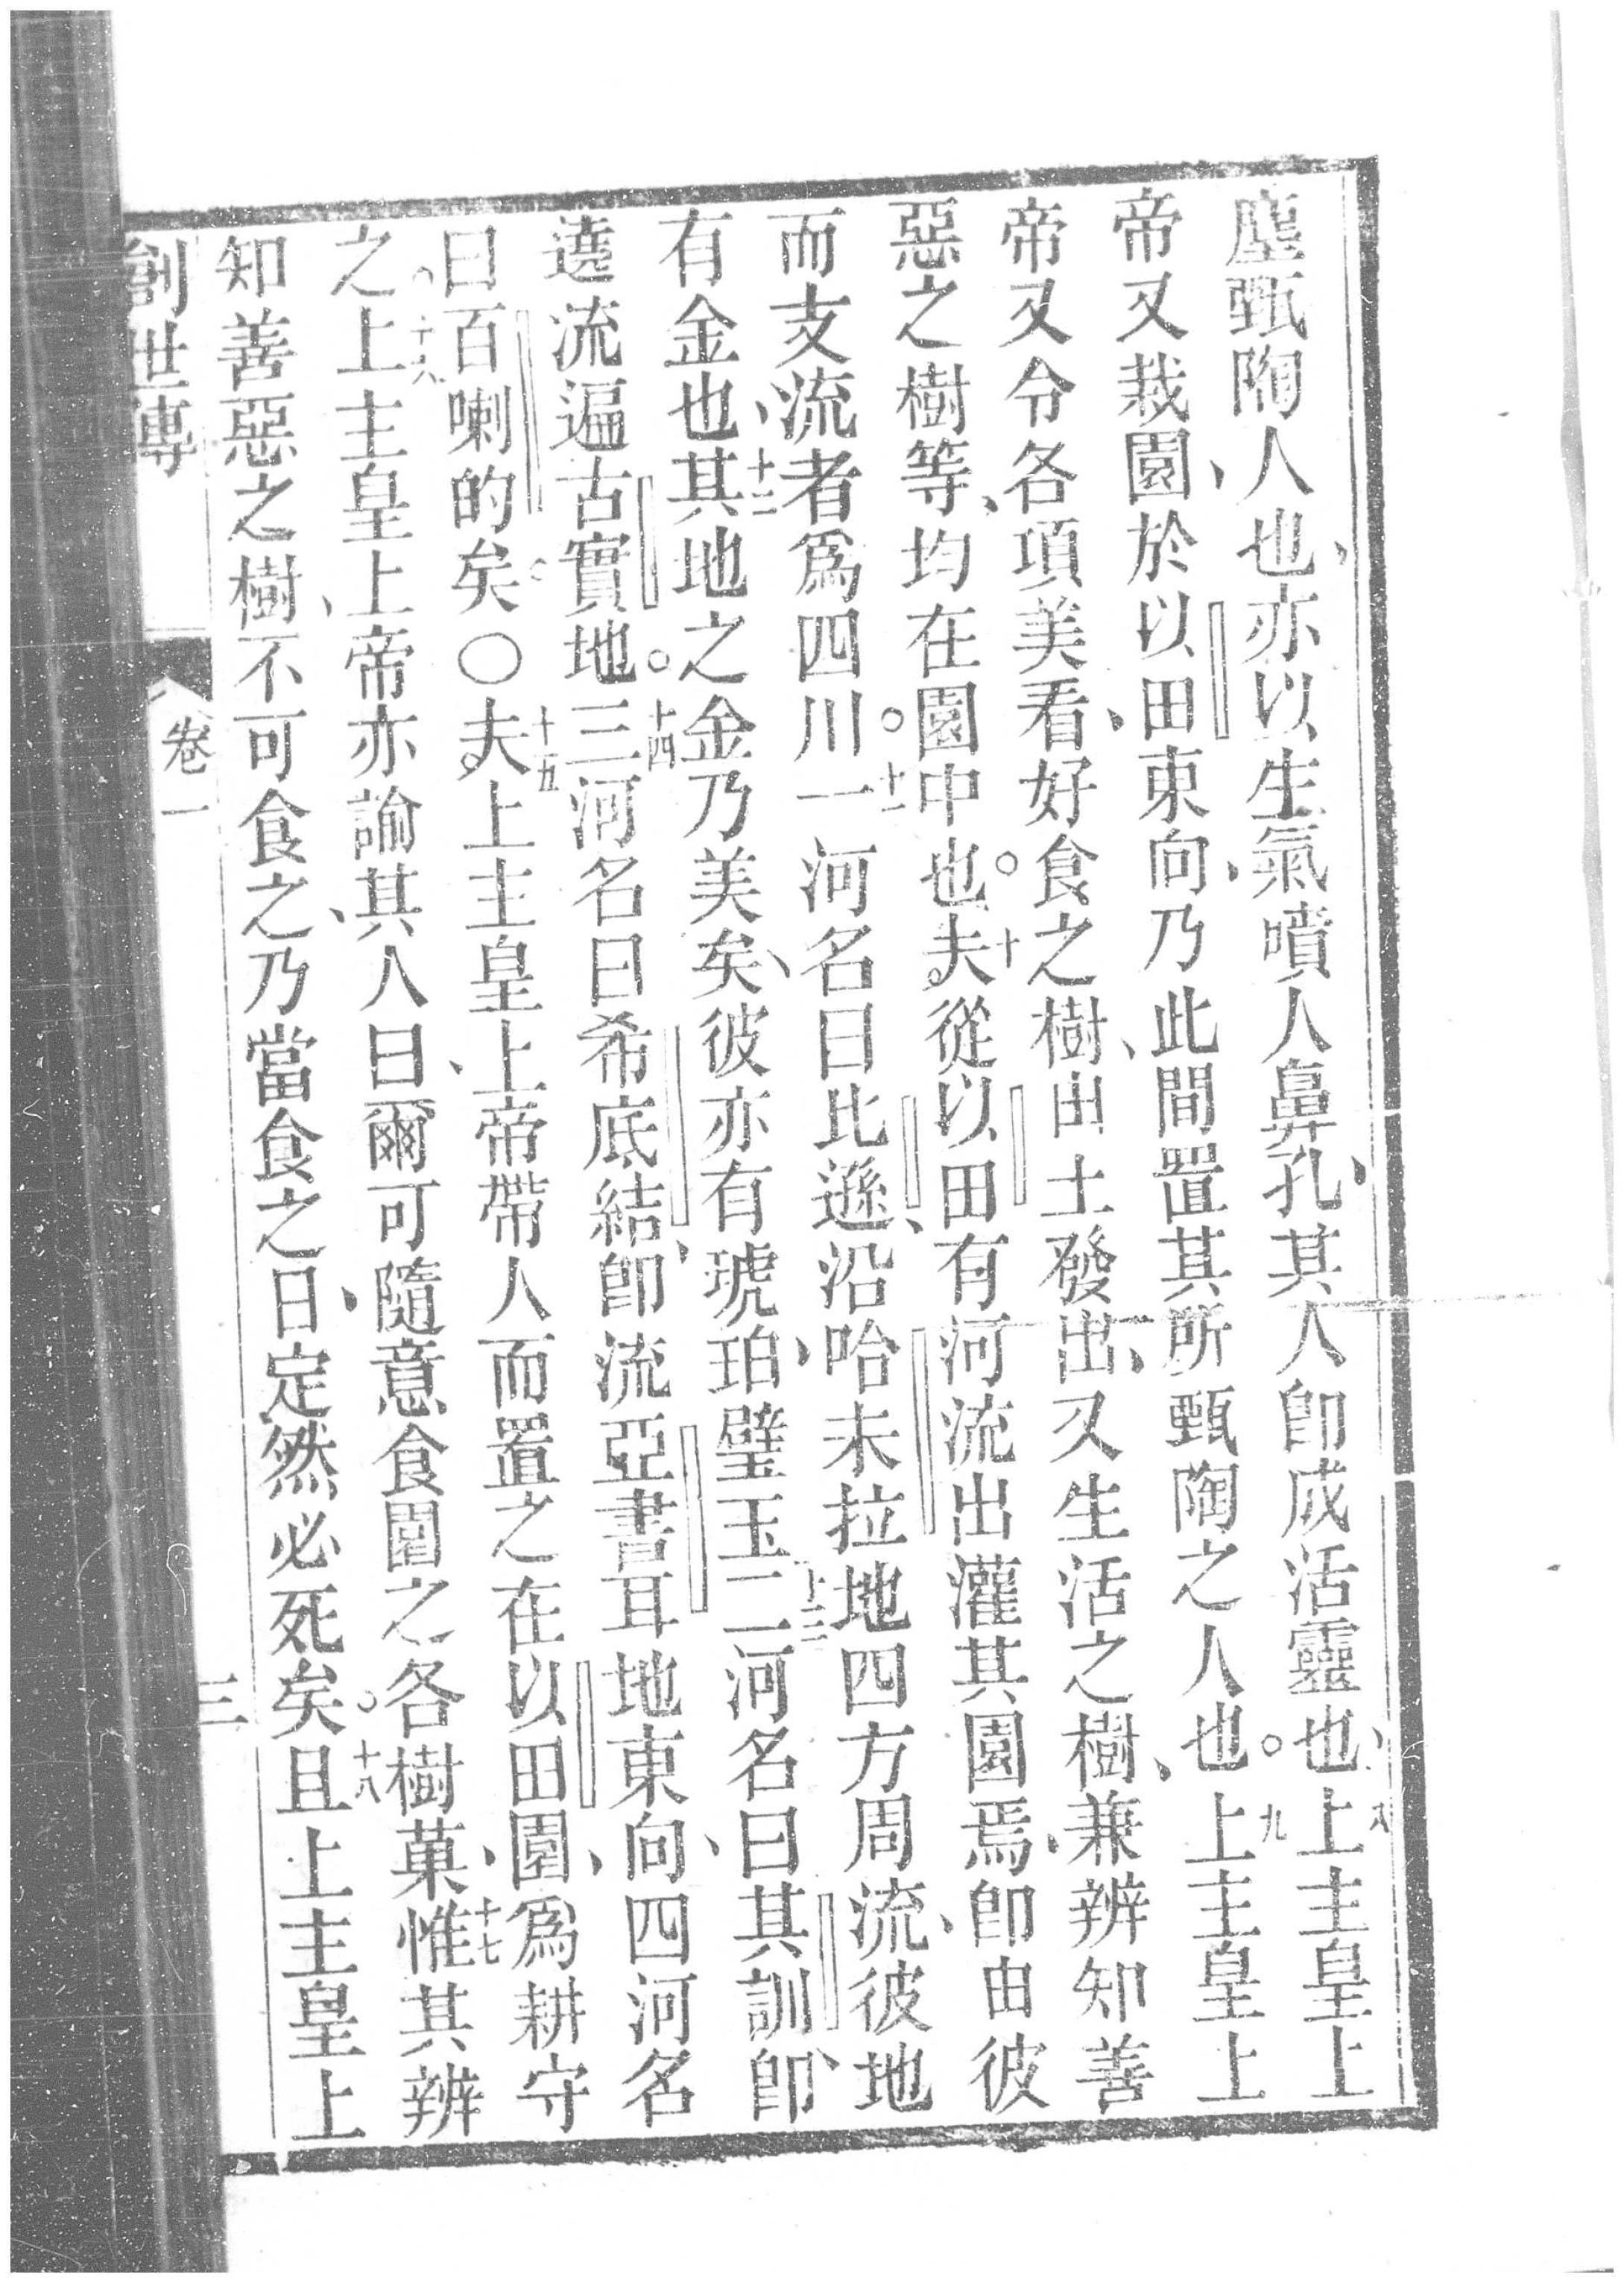 塵甄陶人也、亦以生氣、噴人鼻孔、其人即成活靈也、八上主皇上
帝又栽園、於以田東向、乃此間置其所甄陶之人也。九上主皇上
帝又令各項美看、好食之樹、由土發出、又生活之樹、兼辨知善
惡之樹等、均在園中也。十夫從以田有河流出灌其園焉、即由彼
而支流者為四川。十一一河名曰比遜、沿哈未拉地四方周流、彼地
有金也、十二其地之金乃美矣、彼亦有琥珀、璧玉、十三二河名曰其訓、即
遶流逼古實地。十四三河名曰希底結、即流亞書耳地東向、四河名
曰百喇的矣。〇十五夫上主皇上帝帶人而置之在以田園、為耕守
之。十六上主皇上帝亦諭其人曰、爾可隨意食園之各樹菓、十七惟其辨
知善惡之樹、不可食之、乃當食之日、定然必死矣。十八且上主皇上
創世傳 卷一 三